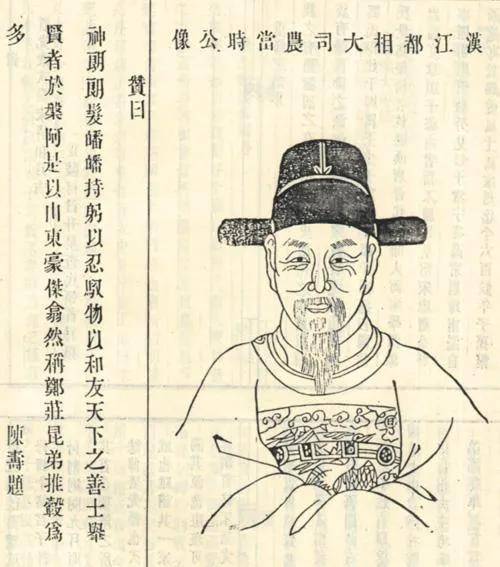 漢江都相大司農當時公像
贊曰
神朗朗髮皤皤持躬以忍馭物以和友天下之善士舉
賢者於槃阿是以山東豪傑翕然稱鄭莊昆弟推轂爲
多
陳壽題